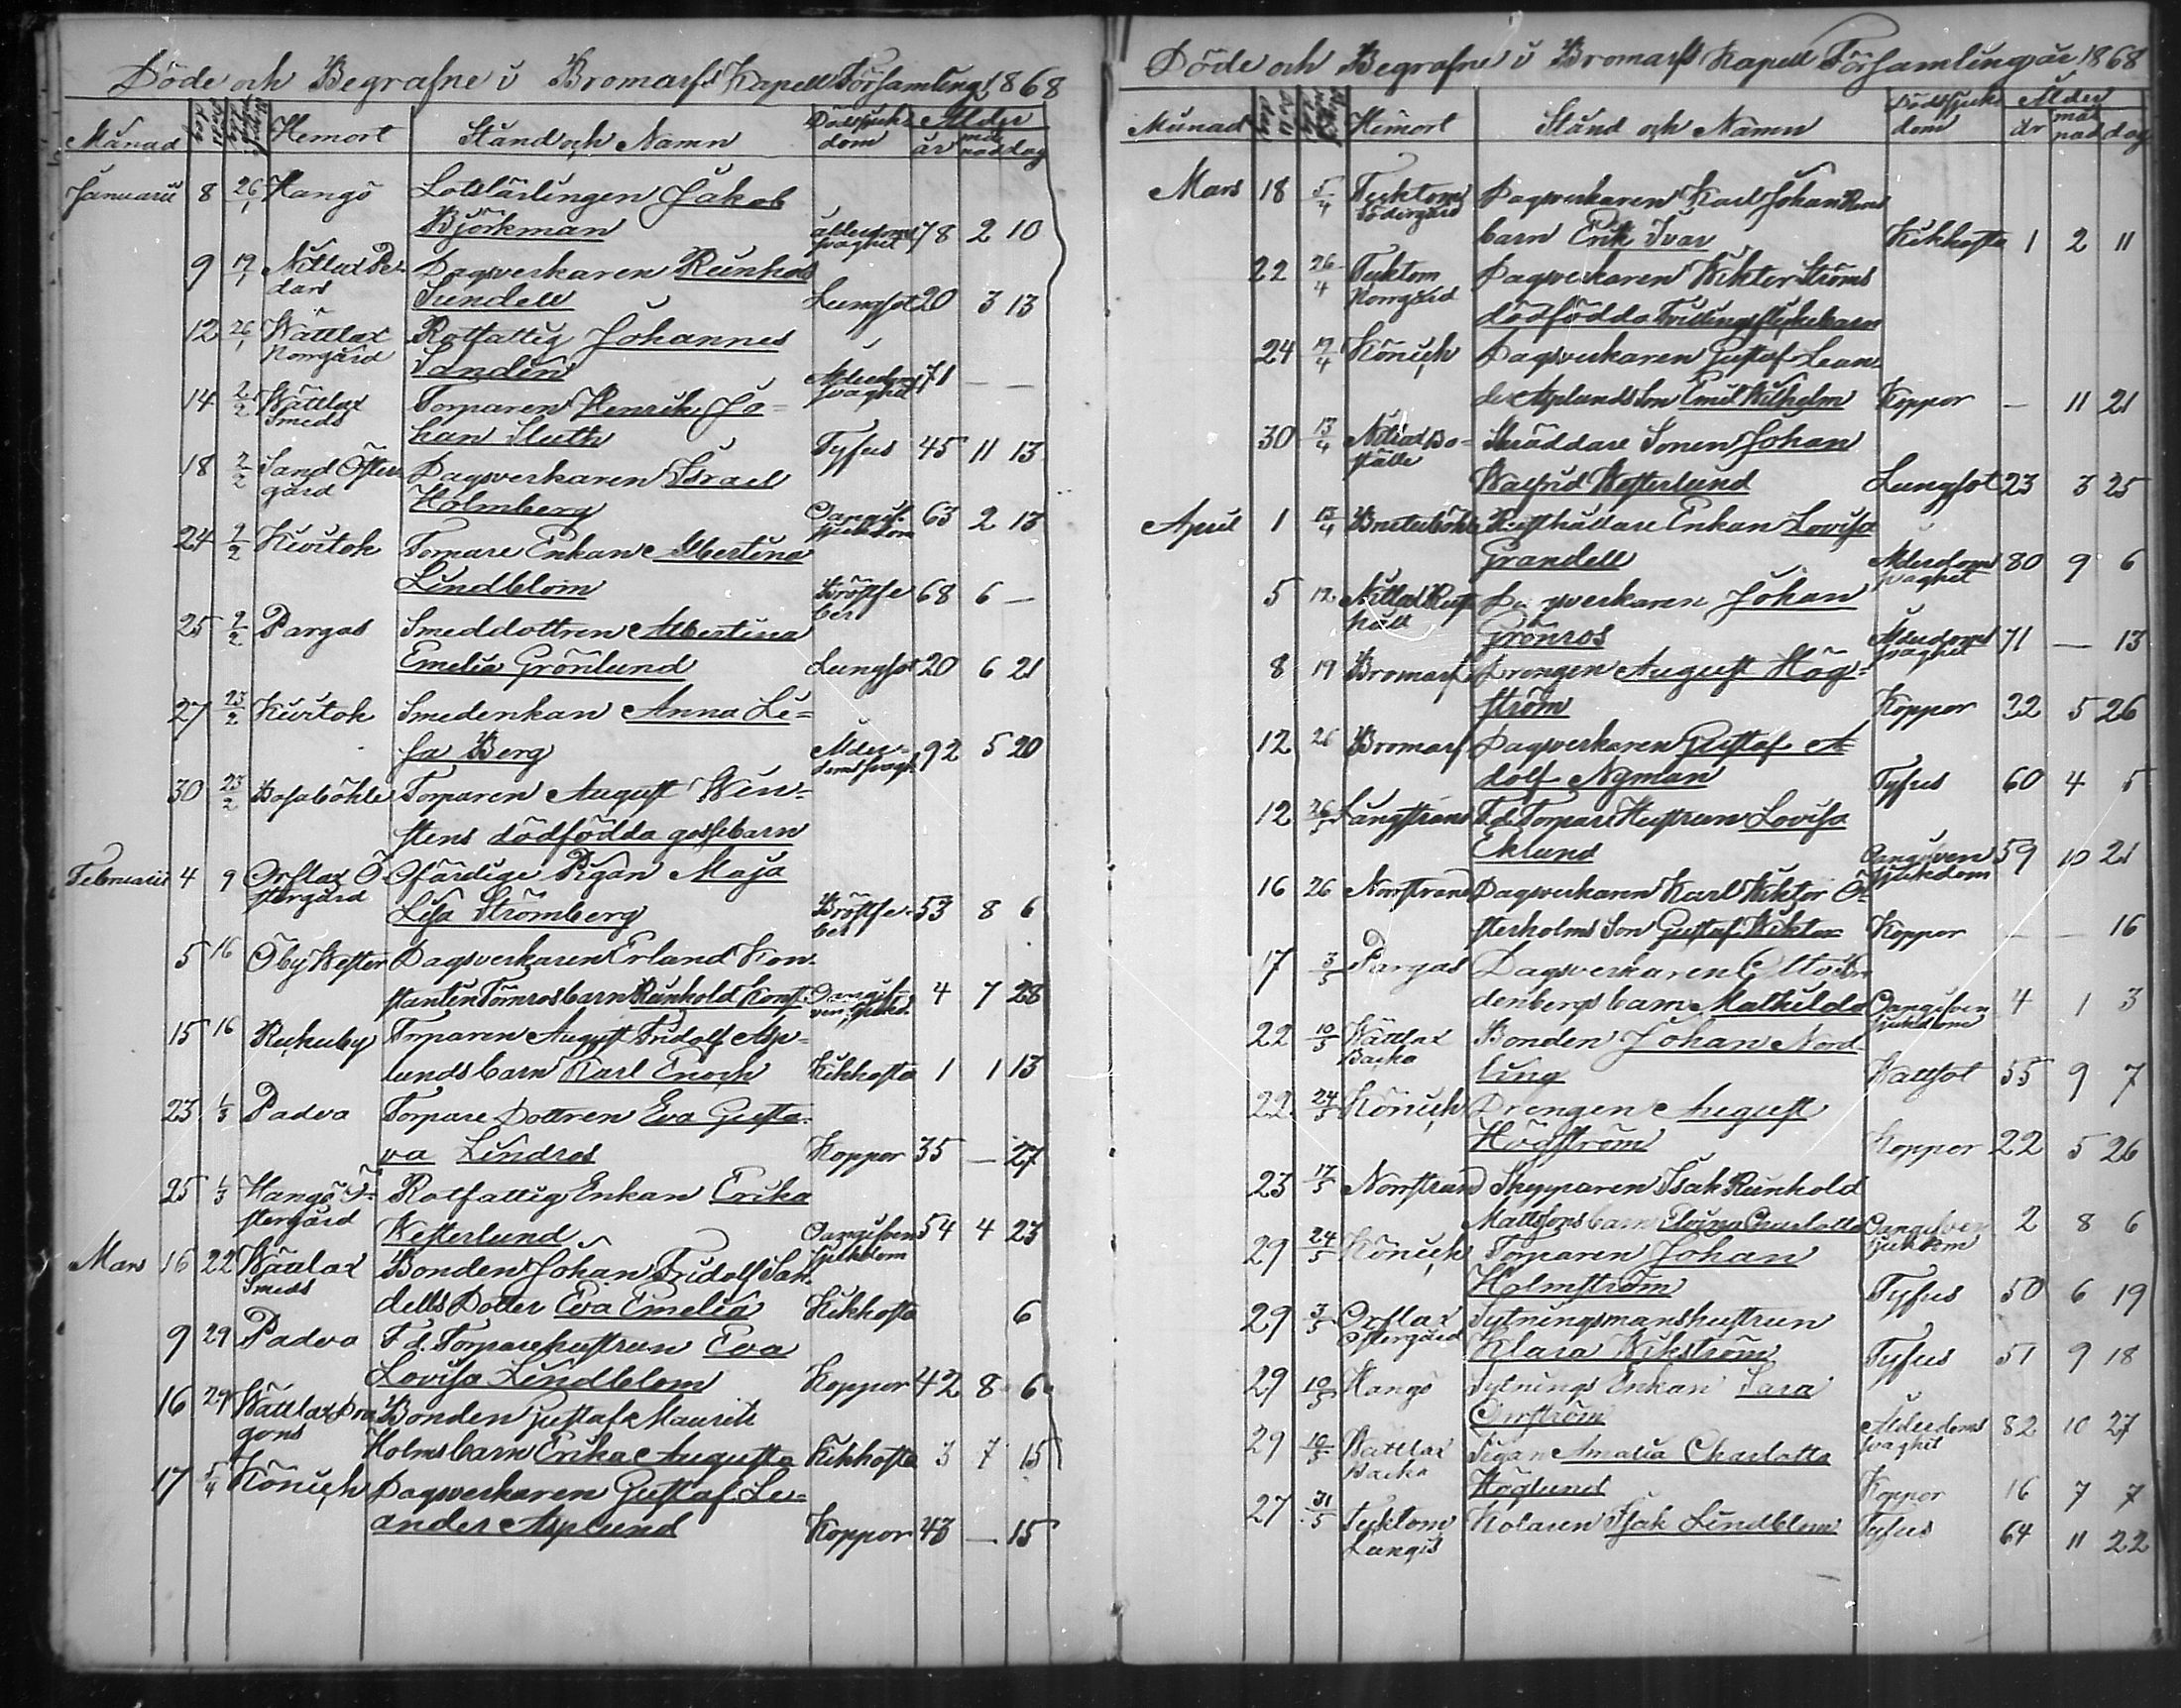 Döde och Begrafne i Bromarfs Kapell Församling 1868
Månad Hemort Stånd och Namn Dödssjuk-dom Ålder
år månad dag
Januarii 8 26/1 Hangö Lotslärlingen Jakob
Björkman ålderdoms svaghet 78 2 10
9 19/1 Nitlax Pe- Dagsverkaren Reinhold
dars Sundell Lungsot 20 3 13
12 26/1 Wättlax Rotfattig Johannes
Norrgård Sandin Ålderdoms svaghet 71 — —
14 2/2 Wättlax Torparen Henrik Jo-
Smeds han Sluth Tyfus 45 11 13
18 2/2 Sand Öster Dagsverkaren Israel
gård Holmberg Oangif. sjukdom 63 2 13
24 2/2 Kivitok Tornare Enkan Albertina
Lindblom Bröstfeber 68 6 —
25 2/2 Pargas Smeddottren Albertina
Emelia Grönlund Lungsot 20 6 21
27 23/2 Kivitok Smedenkan Anna Li-
sa Berg Ålder-doms svagh. 92 5 20
30 23/2 Bosaböhle Torparen August Wen-
stens dödfödda gossebarn
Februarii 4 9 Orslax Ö- Ofärdige Pigan Maja
stergård Lisa Strömberg Bröstfe-ber 53 8 6
5 16 Öby Wester Dagsverkaren Erland Kon-
stantin Törnros barn Reinhold Konst. Oangif-ven sjukd. 4 7 28
15 16 Rukuby Torparen August Fridolf Asp-
lunds barn Karl Enoch Kikhosta 1 1 13
23 1/3 Padva Torpare Dottren Eva Gusta-
va Lindros Koppor 35 — 27
25 1/3 Hangö Ö- Rotfattig Enkan Erika
stergård Westerlund Oangifven sjukdom 54 4 23
Mars 16 22 Wättlax Bonden Johan Fridolf San-
Smeds dells Dotter Eva Emelia Kikhosta 6
9 29 Padva F.d. Torparehustrun Eva
Lovisa Lindblom Koppor 42 8 6
16 29 Wättlax Dra Bonden Gustaf Maurits
gons Holms barn Erika Augusta Kikhosta 3 7 15
17 5/4 Köniçk Dagsverkaren Gustaf Le-
ander Asplund Koppor 43 — 15
Döde och Begrafne i Bromarfs Kapell Församling år 1868
Månad Hemort Stånd och Namn Dödssjuk-dom Ålder
år månad dag
Mars 18 5/4 Tecktom Dagsverkaren Karl Johan
Södergård barn Erik Ivar Kikhosta 1 2 11
22 26/4 Tecktom Dagsverkaren Wikter Ströms
Norrgård dödfödda Tvillingsflickebarn
24 12/4 Köniçk Dagsverkaren Gustaf Lean-
der Asplunds Son Emil Wilhelm Koppor — 11 21
30 13/4 Nitlax Bo- Skräddare Sonen Johan
ställe Walfrid Westerlund Lungsot 23 3 25
April 1 13/4 Rusthållare Enkan Lovisa
Grandell Ålderdoms svaghet 80 9 6
5 12 Nitlax Rust Dagsverkaren Johan
håll Grönros Ålderdoms svaghet 71 — 13
8 19 Bromarf Drengen August Hög-
ström Koppor 22 5 26
12 26 Bromarf Dagsverkaren Gustaf A-
dolf Nyman Tyfus 60 4 5
12 26/5 Långstrand F.d. Torpare Hustrun Lovisa
Eklund Oangifven sjukdom 59 10 21
16 26 Norrstrand Dagsverkaren Karl Wiktor Ö-
sterholms Son Gustaf Wiktor Koppor — — 16
17 3/5 Pargas Dagsverkaren Otto Lin-
denbergs barn Mathilda Oangifven sjukdom 4 1 3
22 10/5 Wättlax Bonden Johan Nord
Backa ling Wattsot 55 9 7
22 24/5 Köniçk Drengen August
Högström Koppor 22 5 26
23 17/5 Norrstrand Skepparen Isak Reinhold
Mattssons barn Elvira Charlotta Oangifven sjukdom 2 8 6
29 24/5 Köniçk Torparen Johan
Holmström Tyfus 50 6 19
29 3/5 Orslax Sytningsmanshustrun
Östergård Klara Wikström Tyfus 51 9 18
29 10/5 Hangö Sytnings Enkan Sara
Öhrström Ålderdoms svaghet 82 10 27
29 10/5 Wättlax Pigan Amalia Charlotta
Backa Höglund Koppor 16 7 7
27 31/5 Tecktom Kolaren Isak Lindblom Tyfus 64 11 22
Langis